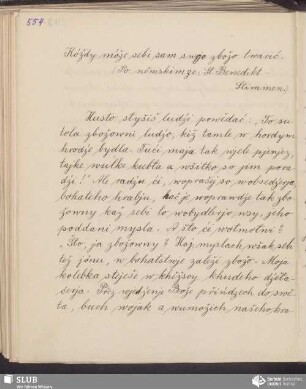 554
Kóždy móže sebi sam swoje zbožo twarić.
(Po němskim ze „St. Benedikt
Stimmen.)
Husto słyšiš ludźi powědać: „To su
tola zbožowni ludźo, kiž tamle w hordym
hrodźe bydla. Tući maja tak wjele pjenjez,
tajke wulke kubła a wšitko so jim pora-
dźi!“ Ale radźu ći, woprašej so wobsedźerja
bohateho kralja, hač je woprawdźe tak zbo-
žowny kaž sebi to wobydlerjo wsy, jeho
poddani mysla. A što ći wotmołwi?
„Što, ja zbožowny? Haj mysla wšak sebi
tež jónu, w bohatstwje zaleži zbožo. Moja
kolebka stejše w khěžcy khudeho dźěła-
ćerja. Přez wjedźenje Bože přińdźech do swě-
ta, buch wojak a wumóžich našeho kra-
SLUB
Wir führen Wissen.